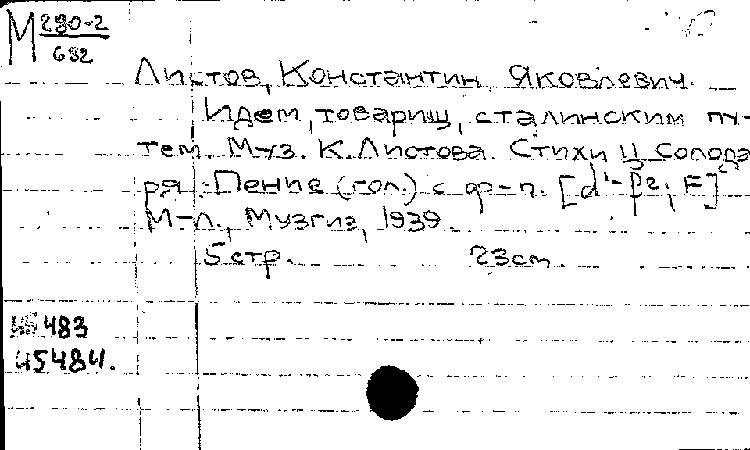 М 290-2
682
Листов, Константин Яковлевич.
Идем, товарищ, сталинским пу-
тем. Муз. К. Листова. Стихи Ц. Солода-
ря. Пение (гол.) с ф-п. [d'-f2; F]
М-Л., Музгиз, 1939.
5 стр. 23 cm.
45483
45484.